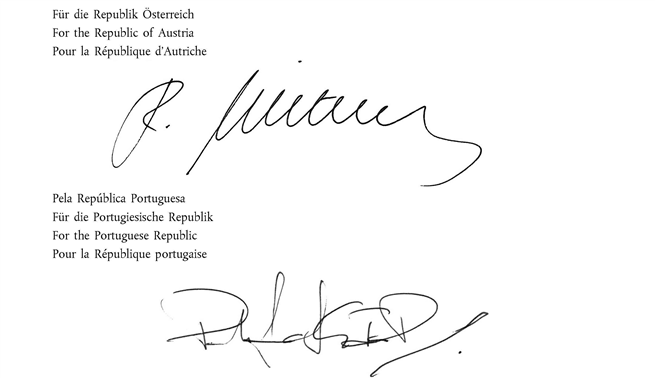 Für die Republik Österreich
For the Republic of Austria
Pour la République d'Autriche
Pela República Portuguesa
Für die Portugiesische Republik
For the Portuguese Republic
Pour la République portugaise